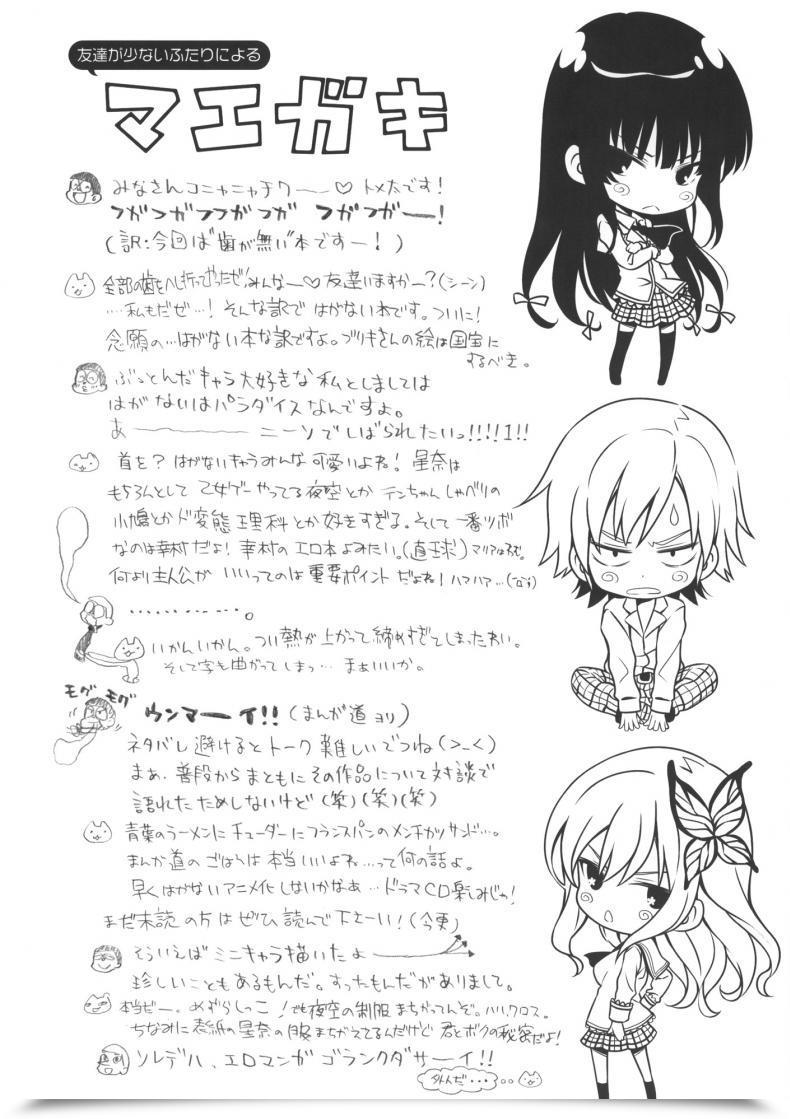 友達が少ないふたりによる
マエガキ
みなさんコニャニャチワー♡ トメ太です!
フガフガフフガフガ フガフガー!
(訳:今回は"歯が無い"本ですー!)
全部の歯をへし折ってやったぜ!みんなー♡友達いますかー?(シーン)
……私もだぜ…! そんな訳で はがない本です。ついに!
念願の…はがない本な訳ですよ。ブリキさんの絵は国宝に
するべき。
ぶっとんだキャラ大好きな私としましては
はがないはパラダイスなんですよ。
あ―――― ニーソでしばられたいっ!!!!1!!
首を? はがないキャラみんな可愛いよね! 星奈は
もちろんとして 乙女ゲーやってる夜空とか テンちゃんしゃべりの
小鳩とかド変態理科とか好きすぎる。そして一番ツボ
なのは幸村だよ! 幸村のエロ本よみたい。(直球)
何より主人公が いいってのは重要ポイントだよね! ハァハァ…
…………。
いかんいかん。つい熱が上がって締めすぎてしまったわい。
そして字も曲がってしまっ… まぁいいか。
モグ モグ
ウンマーイ!! (まんが道ヨリ)
ネタバレ避けるとトーク難しいでつね(>_<)
まぁ、普段からまともにその作品について対談で
語れたためしないけど(笑)(笑)(笑)
青葉のラーメンにチューダーにフランスパンのメンチカツサンド…。
まんが道のごはんは本当いいよね…って何の話よ。
早くはがないアニメ化しないかなぁ…ドラマCD楽しみじゃ!
まだ未読の方はぜひ読んで下さーい!(今更)
そういえばミニキャラ描いたよ
珍しいこともあるもんだ。すったもんだがありまして。
本当ピー。めずらしっこ!でも夜空の制服まちがってんぞ。
ちなみに表紙の星奈の服まちがえてるんだけど 君とボクの秘密だよ!
ソレデハ、エロマンガ ゴランクダサーイ!!